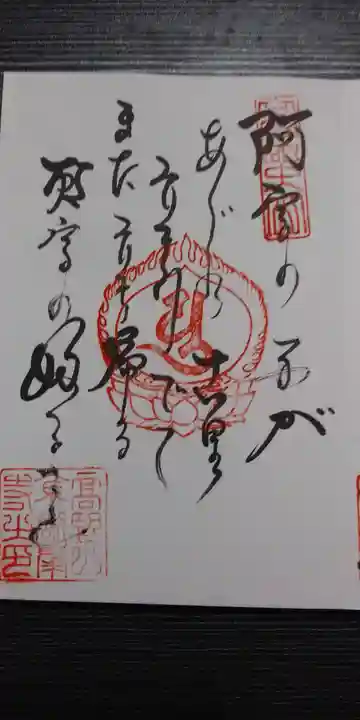 阿字の子が
あじの古里
立ちいでて
また立ち帰る
阿字の婦る
さと